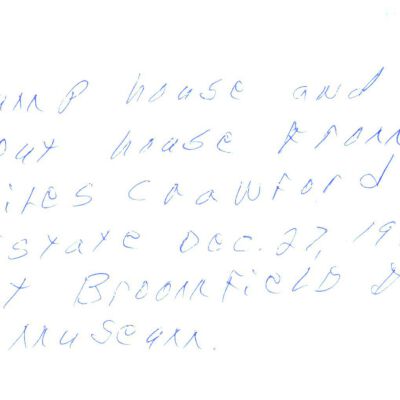 ump house and
out house from
iles Crawford
state Dec. 27, 19
t Broomfield
museum.